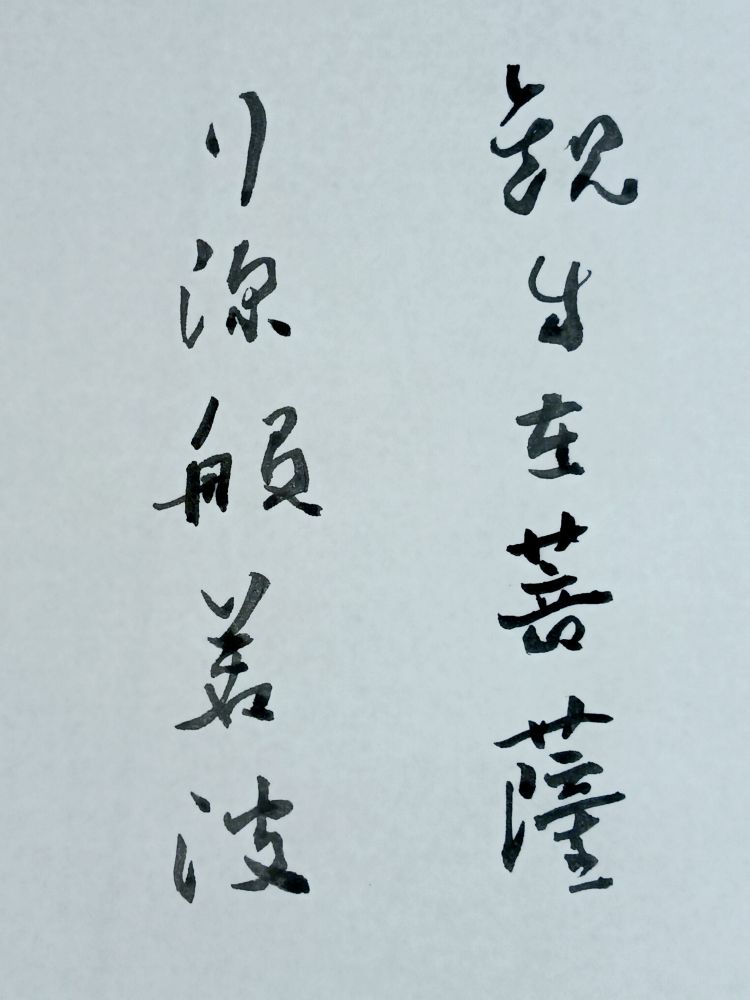 観自在菩薩
行深般若波